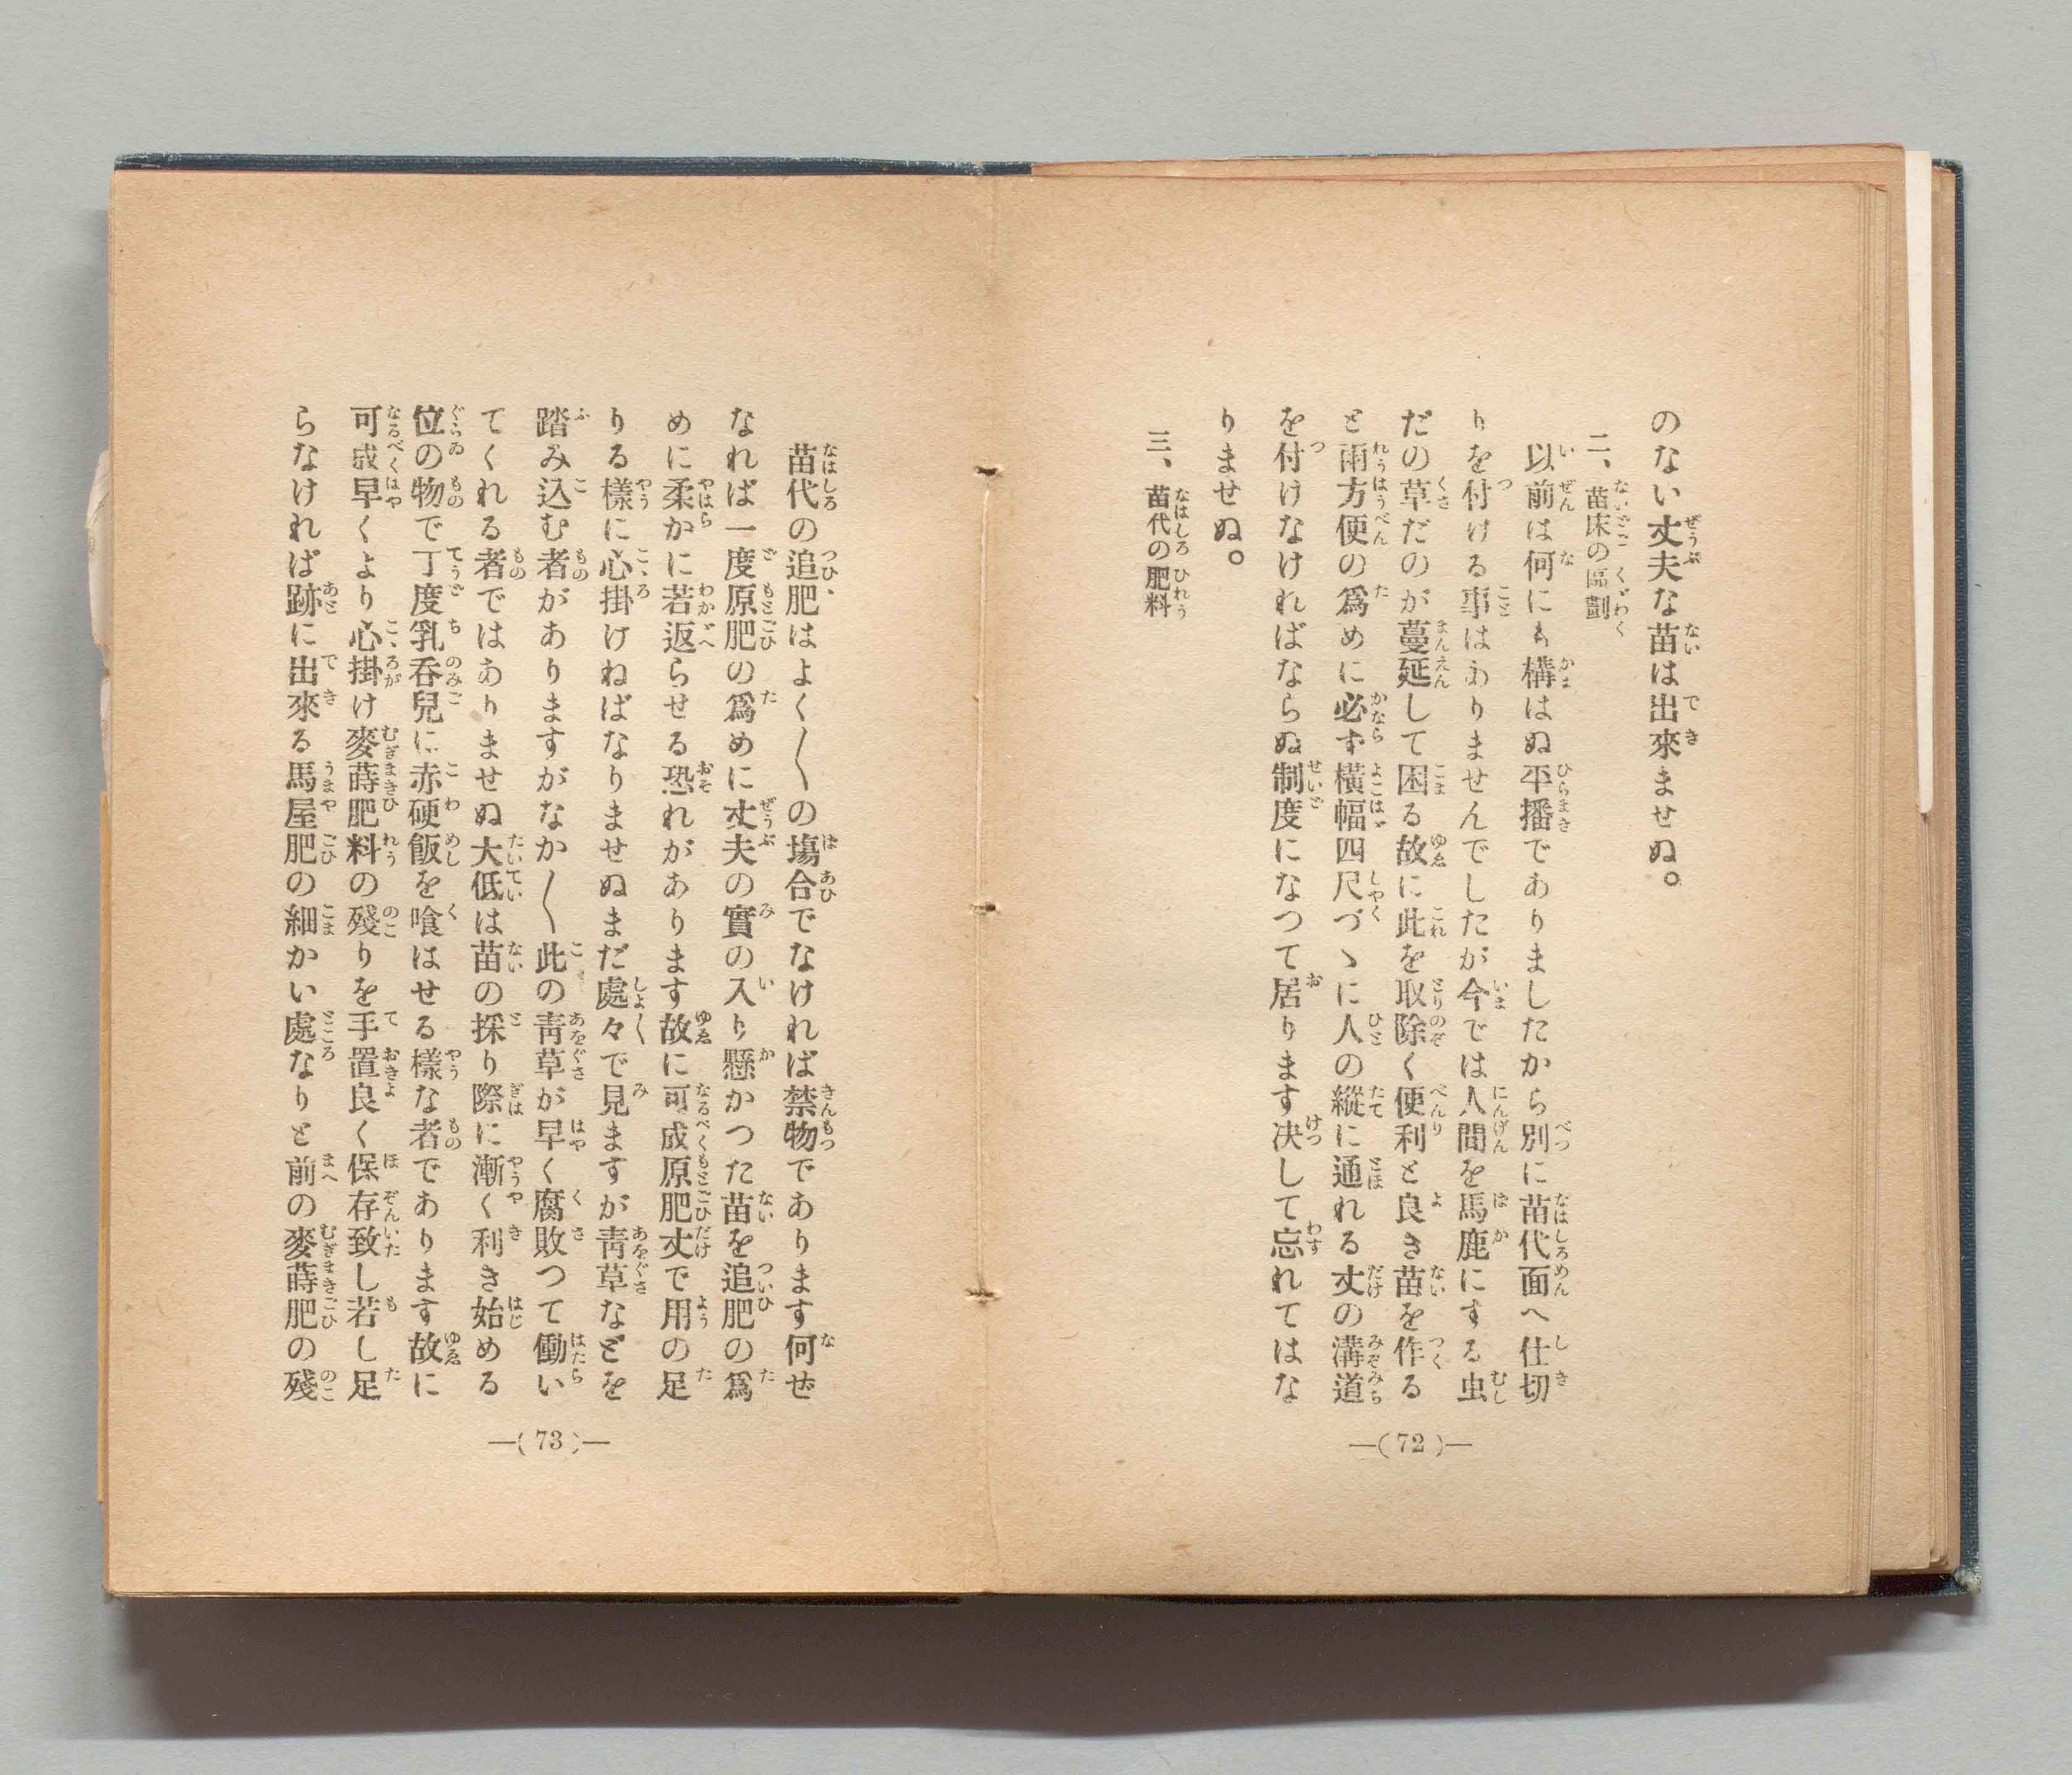 のない丈夫な苗は出來ませぬ。
二、苗床の區劃
以前は何にも構はぬ平播でありましたから別に苗代面へ仕切
りを付ける事はありませんでしたが今では人間を馬鹿にする虫
だの草だのが蔓延して困る故に此を取除く便利と良き苗を作る
と兩方便の爲めに必ず橫幅四尺づゝに人の縱に通れる丈の溝道
を付けなければならぬ制度になつて居ります決して忘れてはな
りませぬ。
三、苗代の肥料
―( 72 )―
苗代の追肥はよく〳〵の塲合でなければ禁物であります何ぜ
なれば一度原肥の爲めに丈夫の實の入り懸かつた苗を追肥の爲
めに柔かに若返らせる恐れがあります故に可成原肥丈で用の足
りる樣に心掛けねばなりませぬまだ處々で見ますが靑草などを
踏み込む者がありますがなか〳〵此の靑草が早く腐敗つて働い
てくれる者ではありませぬ大低は苗の採り際に漸く利き始める
位の物で丁度乳呑兒に赤硬飯を喰はせる樣な者であります故に
可成早くより心掛け麥蒔肥料の殘りを手置良く保存致し若し足
らなければ跡に出來る馬屋肥の細かい處なりと前の麥蒔肥の殘
―( 73 )―